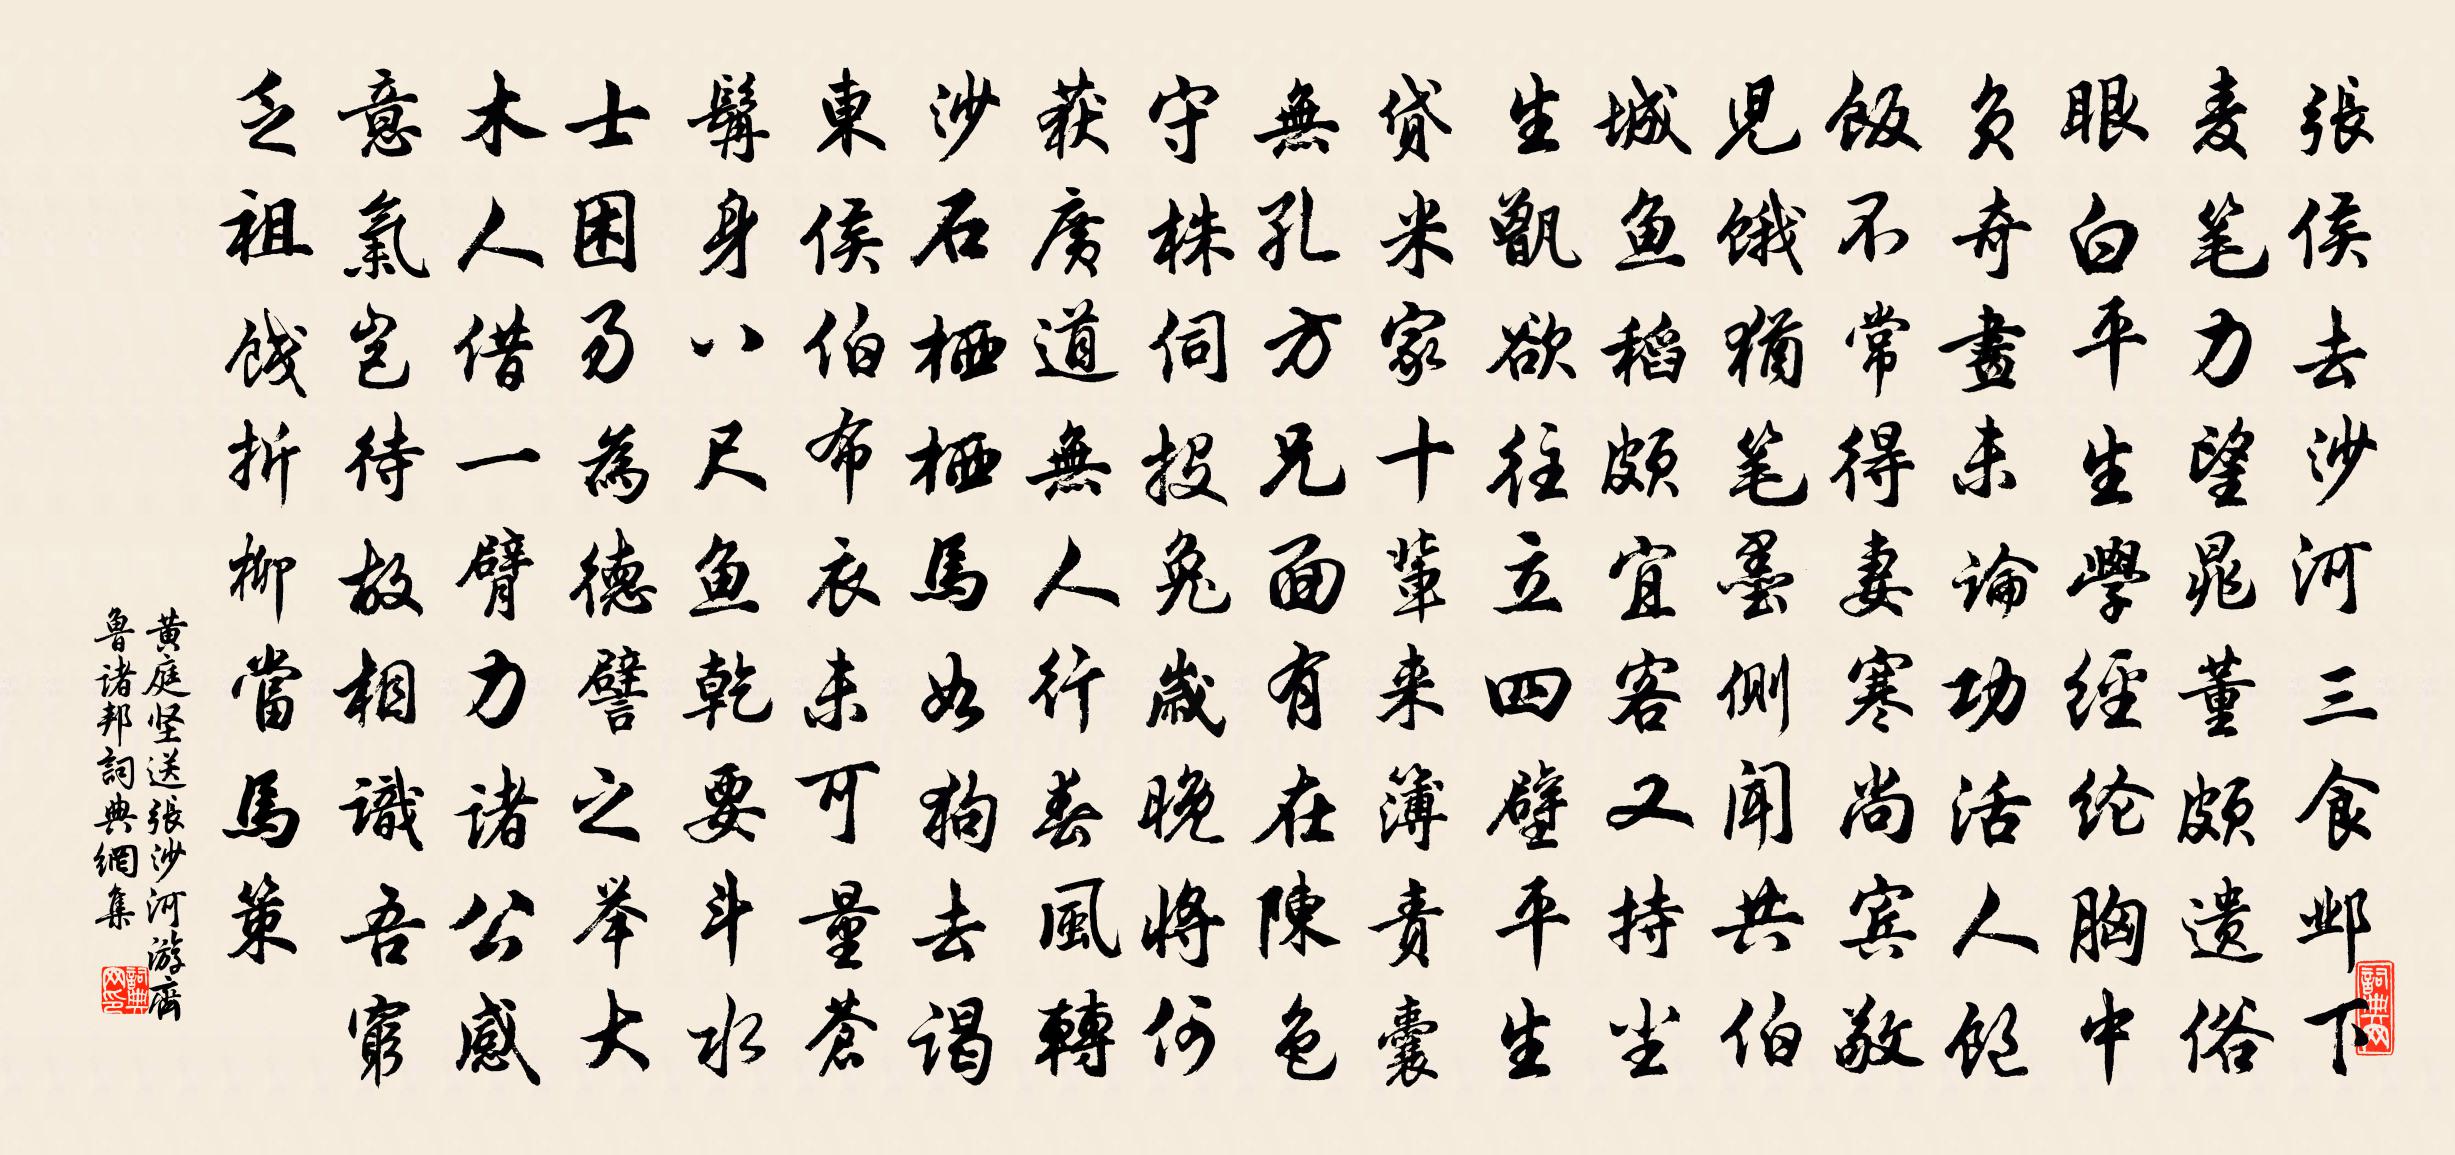 張侯去沙河三食邺下
麦笔力望晁董頗遗俗
眼白平生學經纶胸中
负奇畫未論功活人饱
飯不常得妻寒尚宾敬
児饿猶笔墨側闻共伯
城鱼稻頗宜客又持坐
生甑欲往立四壁平生
貸米家十輩来簿责囊
無孔方兄面有在陳色
守株伺投兔歳晚将何
获廣道無人行春風轉
沙石栖栖馬如狗去谒
東侯伯布衣未可量蒼
髯身八尺鱼乾要斗水
士困易為德譬之举大
木人借一臂力诸公感
意氣岂待故相識吾窮
乏祖餞折柳當馬策
黄庭坚送張沙河游齊
魯诸邦詞典網集